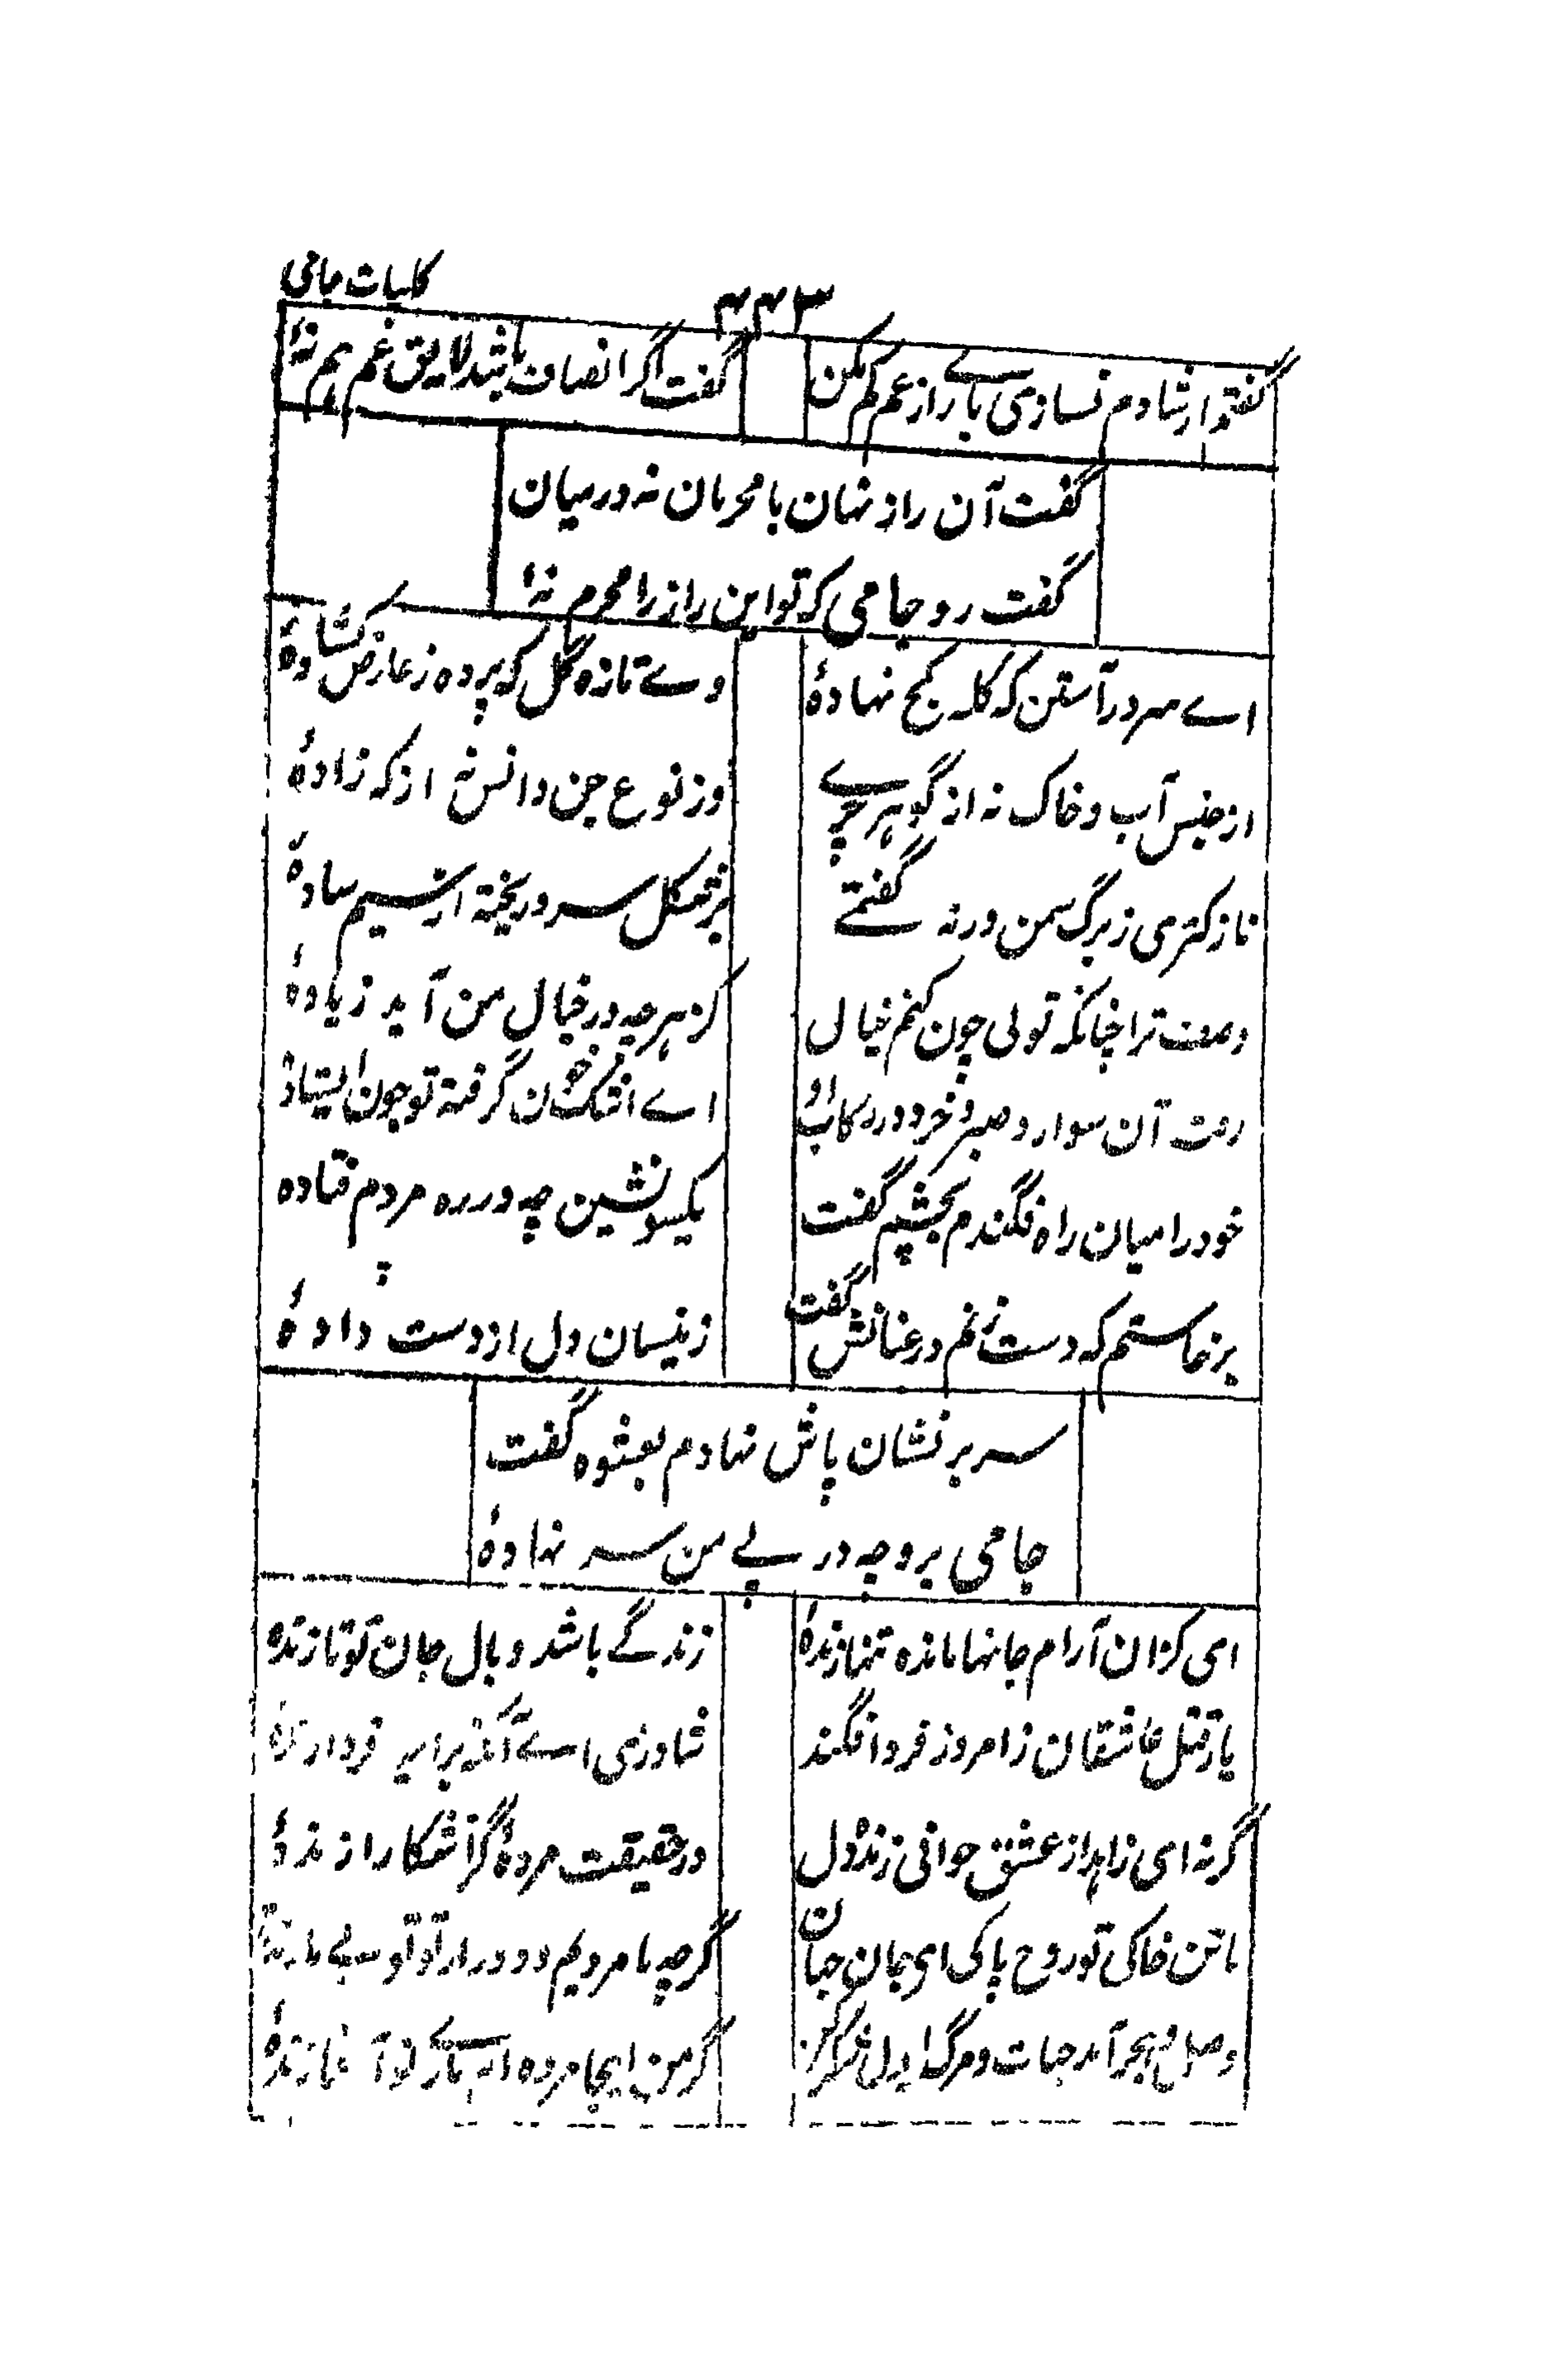 کلیات جامی
۴۴۳
گفتم ار شادم نسازی بارے از غم کم مکن
گفت اگر انصاف باشد لایق غم هم نۂ
گفت آن راز نهان با محرمان نه درمیان
گفت رو جامی که تو این راز را محرم نۂ
اے سرو راستن که کله کج نهادۂ
وے تازه گل که پرده ز عارض کشادۂ
از جنس آب و خاک نه از گوهر چہے
وز نوع جن و انس نه از که زادۂ
نازکتری ز برگ سمن ورنه گفتمے
بر شکل سرو ریخته از سیم سادۂ
وصف ترا چنانکه تولی چون کنم خیال
کز هرچه در خیال من آید زیادۂ
رفت آن سوار و صبر و خرد در رکاب او
اے اشک خون گرفته تو چون ایستادۂ
خود را میان راه فگندم بچشم گفت
یکسو نشین چه در ره مردم فتاده
برخاستم که دست زنم در عنانش گفت
زینسان دل از دست دادۂ
سر بر نشان پاش نهادم بعشوه گفت
جامی برو چه در پے من سر نهادۂ
ای کزان آرام جانها مانده تنها زندۂ
زندگے باشد وبال جان تو تا زندۂ
یار قتل عاشقان ز امروز فردا فگند
شادزی اے آنکه بر امید فردا زندۂ
گر نه ای زاهد از عشق جوانی زنده دل
در حقیقت مردۂ گر آشکارا زندۂ
ما تن خاکی تو روح پاکی ای جان جهان
گرچه ما مردیم دور از تو تو بے ما زندۂ
وصل و هجر آمد حیات و مرگ ایدل شکر کن
گر من اینجا مرده ام بارے تو آنجا زندۂ